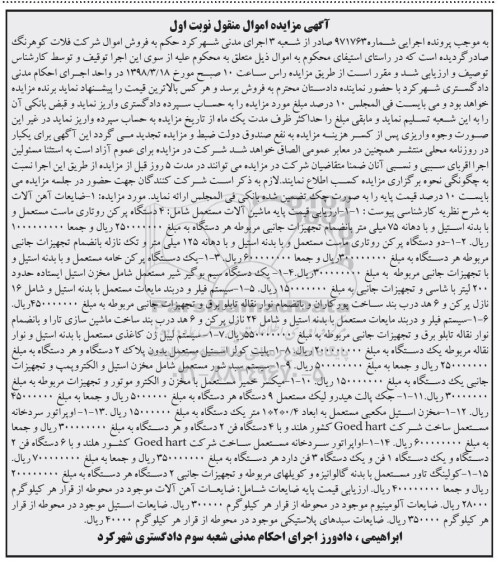 آگهی مزایده اموال منقول نوبت اول
به موجب پرونده اجرایی شماره۹۷۱۷۶۳ صادر از شعبه ۳ اجرای مدنی شهرکرد حکم به فروش اموال شرکت فلات کوهرنگ
صادرگردیده است که در راستای استیفای محکوم به اموال ذیل متعلق به محکوم علیه از سوی این اجرا توقیف و توسط کارشناس
توصیف و ارزیابی شد و مقرر است از طریق مزایده راس ساعت ۱۰ صبح مورخ ۱۳۹۸/۳/۱۸ در واحد اجرای احکام مدنی
دادگستری شهرکرد با حضور نماینده دادستان محترم به فروش برسد و هر کس بالاترین قیمت را پیشنهاد نماید برنده مزایده
خواهد بود و می بایست فی المجلس ۱۰ درصد مبلغ مورد مزایده را به حساب سپرده دادگستری واریز نماید و قبض بانکی آن
را به این شعبه تسلیم نماید و مابقی مبلغ را حداکثر ظرف مدت یک ماه از تاریخ مزایده به حساب سپرده واریز نماید در غیر این
صورت وجوه واریزی پس از کسر هزینه مزایده به نفع صندوق دولت ضبط و مزایده تجدید می گردد این آگهی برای یکبار
در روزنامه محلی منتشر همچنین در معابر عمومی الصاق خواهد شد شرکت در مزایده برای عموم آزاد به استثنا مسئولین
اجرا اقربای سببی و نسبی آنان ضمنا متقاضیان شرکت در مزایده می توانند در مدت ۵ روز قبل از مزایده از طریق این اجرا نسبت
به چگونگی نحوه برگزاری مزایده کسب اطلاع نمایند.لازم به ذکر است شرکت کنندگان جهت حضور در جلسه مزایده می
بایست ۱۰ درصد قیمت پایه را به صورت چک تضمین شده بانکی فی المجلس ارائه نماید. مورد مزایده: ۱-ضایعات آهن آلات
به شرح نظریه کارشناسی پیوست : ۱-۱-ارزیابی قیمت پایه ماشین آلات مستعمل شامل: ۴ دستگاه پرکن روتاری ماست مستعمل و
با بدنه استیل و با دهانه ۷۵ میلی متر بانضمام تجهیزات جانبی مربوطه هر دستگاه به مبلغ
ریال. ۱-۲-دو دستگاه پرکن روتاری ماست مستعمل و با بدنه استیل و با دهانه ۱۲۵ میلی متر و تک نازله بانضمام تجهیزات جانبی
مربوطه هر دستگاه به مبلغ ریال و جمعا ریال. ۱-۳-یک دستگاه پرکن خامه مستعمل و با بدنه استیل و
با تجهیزات جانبی مربوطه به مبلغ ریال.۱-۴-یک دستگاه سیم بوگیر شیر مستعمل شامل مخزن استیل ایستاده حدود
۲۰۰ لیتر با شاسی و تجهیزات جانبی به مبلغ ریال. ۱-۵-سیستم فیلر و دربند مایعات مستعمل با بدنه استیل و شامل ۱۶
نازل پرکن و ۶ هد درب بند ساخت پورکاران و بانضمام نوار نقاله تابلو برق و تجهیزات جانبی مربوطه به مبلغ
۱-۶-سیستم فیلر و دربند مایعات مستعمل با بدنه استیل و شامل ۲۴ نازل پرکن و ۶ هد درب بند ساخت ماشین سازی تارا و بانضمام
نوار نقاله تابلو برق و تجهیزات جانبی مربوطه به مبلغ ریال.۱-۷-سیستم لیبل ژن کاغذی مستعمل با بدنه استیل و نوار
نقاله مربوطه یک دستگاه به مبلغ ریال.۱-۸-پلیت کولر استیل مستعمل بدون پلاک ۲ دستگاه و هر دستگاه به مبلغ
جانبی یک دستگاه به مبلغ ریال.۱-۱۰-میکسر خمیر مستعمل با مخزن و الکترو موتور و تجهیزات مربوطه به مبلغ
ریال.۱-۱۱-جک پالت هیدرولیک مستعمل ۹ دستگاه هر دستگاه به مبلغ ریال و جمعا به مبلغ
ریال.۱-۱۲-مخزن استیل مکعبی مستعمل به ابعاد متر یک دستگاه به مبلغ ریال.۱-۱۳-اوپراتور سردخانه
مستعمل ساخت شرکت Goed hart کشور هلند و با ۴ دستگاه فن ۲ دستگاه و هر دستگاه به مبلغ ریال و جمعا
به مبلغ ریال. ۱-۱۴-اواپراتور سردخانه مستعمل ساخت شرکت Goed hart کشور هلند و با ۶ دستگاه فن ۲
دستگاه و یک دستگاه ۱ فن و یک دستگاه ۳ فن دارد هر دستگاه به مبلغ ریال و جمعا به مبلغ ریال.
۱-۱۵-کولینگ تاور مستعمل با بدنه گالوانیزه و کویلهای مربوطه و تجهیزات جانبی ۲ دستگاه هر دستگاه به مبلغ
ریال و جمعا ریال. ارزیابی قیمت پایه ضایعات شامل: ضایعات آهن آلات موجود در محوطه از قرار هر کیلوگرم
۲۸۰۰۰ ریال. ضایعات آلومینیوم موجود در محوطه از قرار هر کیلوگرم ریال. ضایعات استیل موجود در محوطه از قرار
هر کیلوگرم ریال. ضایعات سبدهای پلاستیکی موجود در محوطه از قرار هر کیلوگرم ۴۰۰۰۰ ریال.
ابراهیمی ، دادورز اجرای احکام مدنی شعبه سوم دادگستری شهرکرد